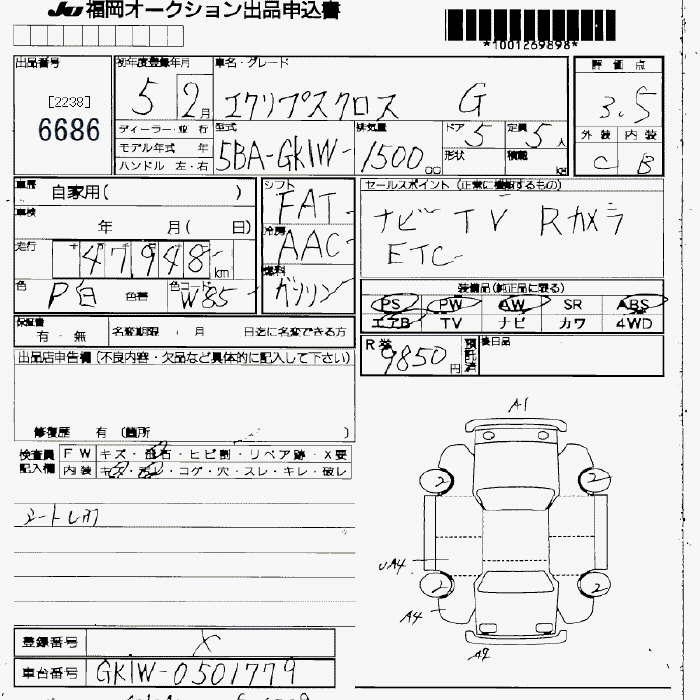 JU福岡オークション出品申込書
*1001269898*
出品番号
[2238]
6686
初年度登録年月
5 2月
車名・グレード
エクリプスクロス G
評価点
3.5
外装 内装
C B
ディーラー・並行
モデル年式 年
ハンドル 左・右
型式
5BA-GK1W-
排気量
1500cc
ドア 5
形状
定員 5人
積載 kg
車歴 自家用( )
車検 年 月( 日)
走行 47,948 km
色 P白 色替 色コード W85
シフト FAT
冷房 AAC
燃料 ガソリン
セールスポイント(正常に機能するもの)
ナビ TV Rカメラ
ETC
装備品(純正品に限る)
PS PW AW SR ABS
エアB TV ナビ カワ 4WD
保証書 有・無 名変期限 月 日迄に名変できる方
R券 9850円 預託済
後日品
出品店申告欄(不良内容・欠品など具体的に記入して下さい)
修復歴 有 (箇所 )
検査員記入欄
FW キズ・飛石・ヒビ割・リペア跡・X要
内装 キズ・コゲ・穴・スレ・キレ・破レ
A1
2 2
UA4
2 2
A4
A2
登録番号 X
車台番号 GK1W-0501779